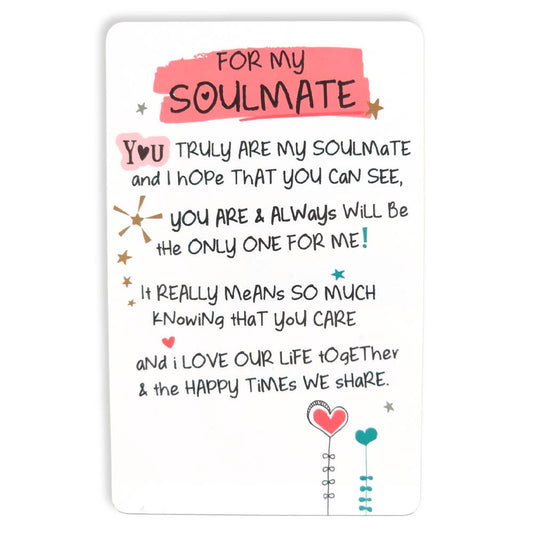 FOR MY
SOULMATE
YOU TRULY ARE MY SOULMaTE
and I hOPE ThAT YOU Can SEE,
YOU ARE & ALWays WiLL Be
tHe ONLY ONE FOR ME!
It REALLY MeANs SO MUCH
KNowiNg tHaT YoU CARE
aNd i LOVE OUR LiFE tOgeTHer
& the HAPPY TiMEs WE sHaRE.